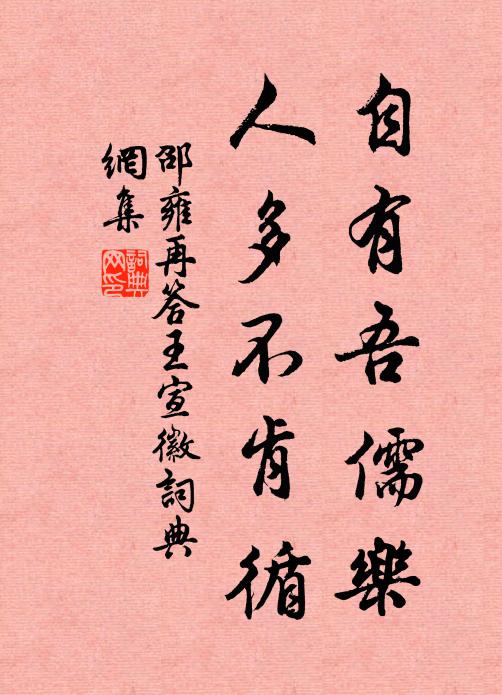 自有吾儒樂
人多不肯循
邵雍再答王宣徽詞典
網集
詞典網印